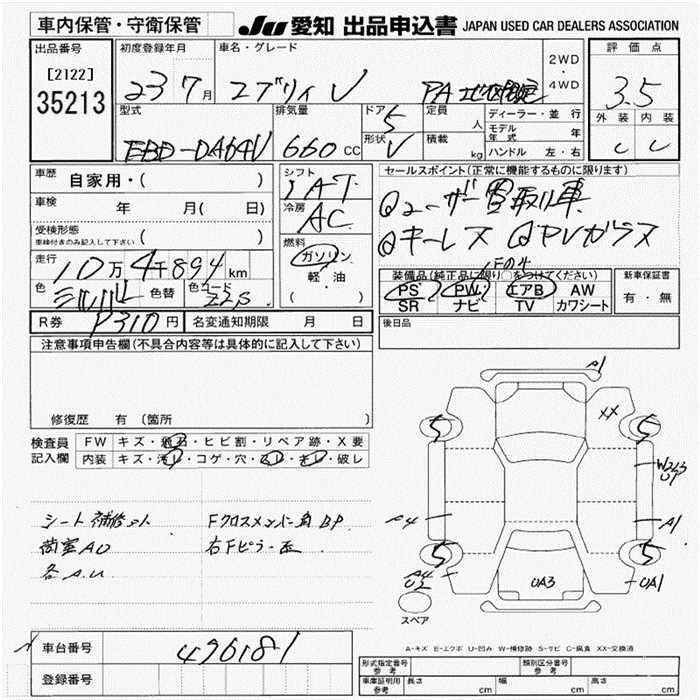 車内保管・守衛保管 JU 愛知 出品申込書 JAPAN USED CAR DEALERS ASSOCIATION
出品番号
[2122]
35213
初度登録年月
23 7月
車名・グレード
エブリィ V
PA
2WD
・
4WD
評価点
3.5
外装 内装
C C
型式
EBD-DA64V
排気量
660 CC
ドア
5
形状
V
定員
人
積載
kg
ディーラー・並行
モデル年式 年
ハンドル 左・右
車歴
自家用・( )
車検 年 月( 日)
受検形態
車検付きのみ記入して下さい ( )
走行
10万4千894km
色 シルバー 色替 色コード Z2S
シフト
AT
冷房
AC
燃料
ガソリン
軽・油
( )
セールスポイント(正常に機能するものに限ります)
ユーザー買取り車
キーレス PVガラス
装備品(純正品に限り○をつけてください)
PS PW エアB AW
SR ナビ TV カワシート
新車保証書
有・無
R券 ¥310円 名変通知期限 月 日
後日品
注意事項申告欄(不具合内容等は具体的に記入して下さい)
修復歴 有 (箇所 )
検査員記入欄
FW キズ・飛石・ヒビ割・リペア跡・X要
内装 キズ・汚レ・コゲ・穴・スレ・キレ・破レ
シート補修キット
荷室AU
各A.U
Fクロスメンバー角BP
右Fピラー歪
A1
XX
5
5
W2 U1
A4
A1
5
5
A4
U2
UA3
UA1
スペア
A-キズ E-エクボ U-凹み W-補修跡 S-サビ C-腐食 XX-交換済
車台番号 496181
登録番号
形式指定番号 参考
類別区分番号 参考
車庫証明用 参考 長さ cm 幅 cm 高さ cm